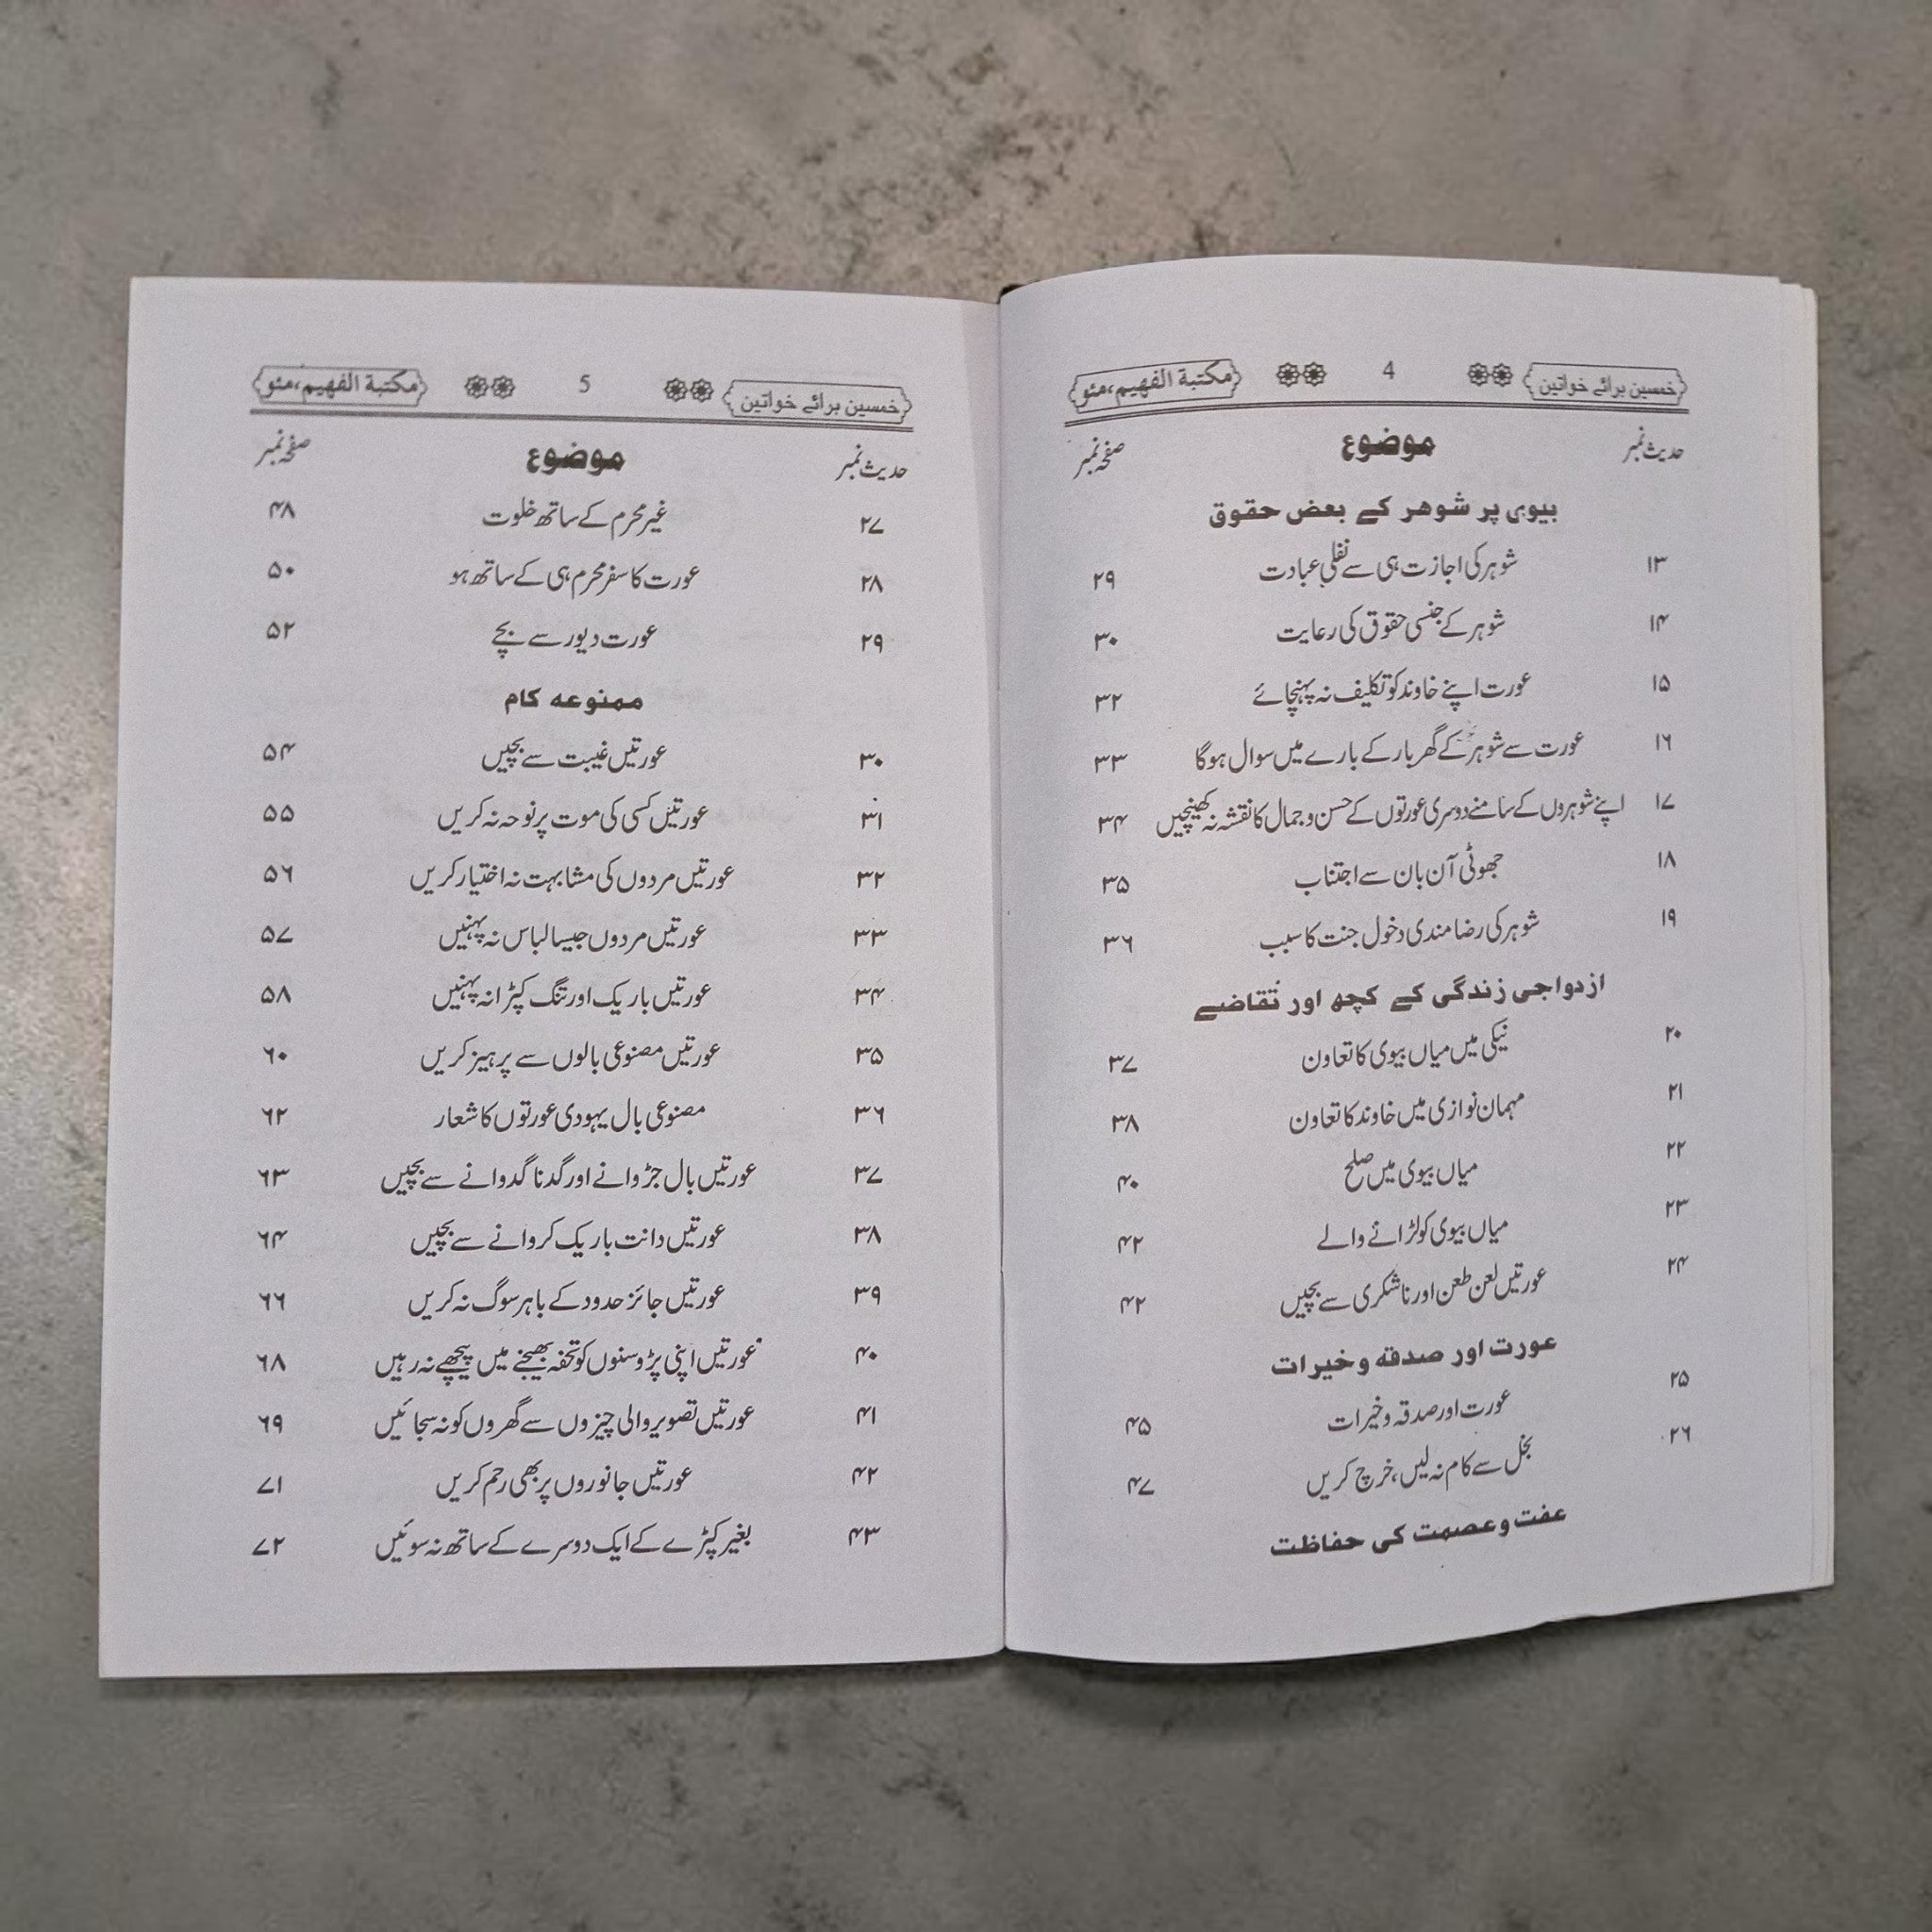 خمسین برائے خواتین 4 مکتبۃ الفهیم،مئو
حدیث نمبر موضوع صفحہ نمبر
بیوی پر شوهر کے بعض حقوق
۱۳ شوہر کی اجازت ہی سے نفلی عبادت ۲۹
۱۴ شوہر کے جنسی حقوق کی رعایت ۳۰
۱۵ عورت اپنے خاوند کو تکلیف نہ پہنچائے ۳۲
۱۶ عورت سے شوہر کے گھر بار کے بارے میں سوال ہوگا ۳۳
۱۷ اپنے شوہروں کے سامنے دوسری عورتوں کے حسن و جمال کا نقشہ نہ کھینچیں ۳۴
۱۸ جھوٹی آن بان سے اجتناب ۳۵
۱۹ شوہر کی رضا مندی دخول جنت کا سبب ۳۶
ازدواجی زندگی کے کچھ اور تقاضے
۲۰ نیکی میں میاں بیوی کا تعاون ۳۷
۲۱ مہمان نوازی میں خاوند کا تعاون ۳۸
۲۲ میاں بیوی میں صلح ۴۰
۲۳ میاں بیوی کو لڑانے والے ۴۲
۲۴ عورتیں لعن طعن اور ناشکری سے بچیں ۴۲
عورت اور صدقه و خیرات
۲۵ عورت اور صدقہ و خیرات ۴۵
۲۶ بخل سے کام نہ لیں، خرچ کریں ۴۷
عفت و عصمت کی حفاظت
خمسین برائے خواتین 5 مکتبۃ الفهیم،مئو
حدیث نمبر موضوع صفحہ نمبر
۲۷ غیر محرم کے ساتھ خلوت ۴۸
۲۸ عورت کا سفر محرم ہی کے ساتھ ہو ۵۰
۲۹ عورت دیور سے بچے ۵۲
ممنوعه کام
۳۰ عورتیں غیبت سے بچیں ۵۴
۳۱ عورتیں کسی کی موت پر نوحہ نہ کریں ۵۵
۳۲ عورتیں مردوں کی مشابہت نہ اختیار کریں ۵۶
۳۳ عورتیں مردوں جیسا لباس نہ پہنیں ۵۷
۳۴ عورتیں باریک اور تنگ کپڑا نہ پہنیں ۵۸
۳۵ عورتیں مصنوعی بالوں سے پرہیز کریں ۶۰
۳۶ مصنوعی بال یہودی عورتوں کا شعار ۶۲
۳۷ عورتیں بال جڑوانے اور گدنا گدوانے سے بچیں ۶۳
۳۸ عورتیں دانت باریک کروانے سے بچیں ۶۴
۳۹ عورتیں جائز حدود کے باہر سوگ نہ کریں ۶۶
۴۰ عورتیں اپنی پڑوسنوں کو تحفہ بھیجنے میں پیچھے نہ رہیں ۶۸
۴۱ عورتیں تصویر والی چیزوں سے گھروں کو نہ سجائیں ۶۹
۴۲ عورتیں جانوروں پر بھی رحم کریں ۷۱
۴۳ بغیر کپڑے کے ایک دوسرے کے ساتھ نہ سوئیں ۷۲